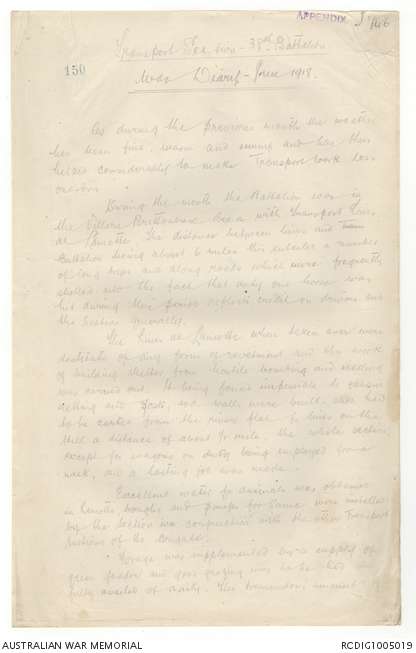 APPENDIX J 146
150
Transport Section 38th Battalion
War Diary - June 1918.
As during the previous month the weather
has been fine, warm and sunny and has thus
helped considerably to make Transport work less
During the month the Battalion was in
the Villers Bretonneux area with Transport lines
at The distance between lines and
Battalion being about 6 miles this entailed a number
of long trips and along roads which were frequently
shelled and the fact that only one horse was
hit during this period reflects credit on drivers and
the Section generally.
The lines at when taken over were
destitute of any form of revetment and the work
of building shelter from hostile bombing and shelling
was carried out. It being found impossible to
sod walls were built, sods had
to be carted from the river flat to lines on the
hill a distance of about 3/4 mile, the whole section
except for on duty being employed for a
week, and a lasting job was made.
Excellent water for animals was obtained
in troughs and pumps for same were installed
by the section in conjunction with the other Transport
Sections of the Brigade.
Forage was supplemented by a supply of
green fodder and good grazing was to be had and
fully availed of daily. The amount of
AUSTRALIAN WAR MEMORIAL
RCDIG1005019